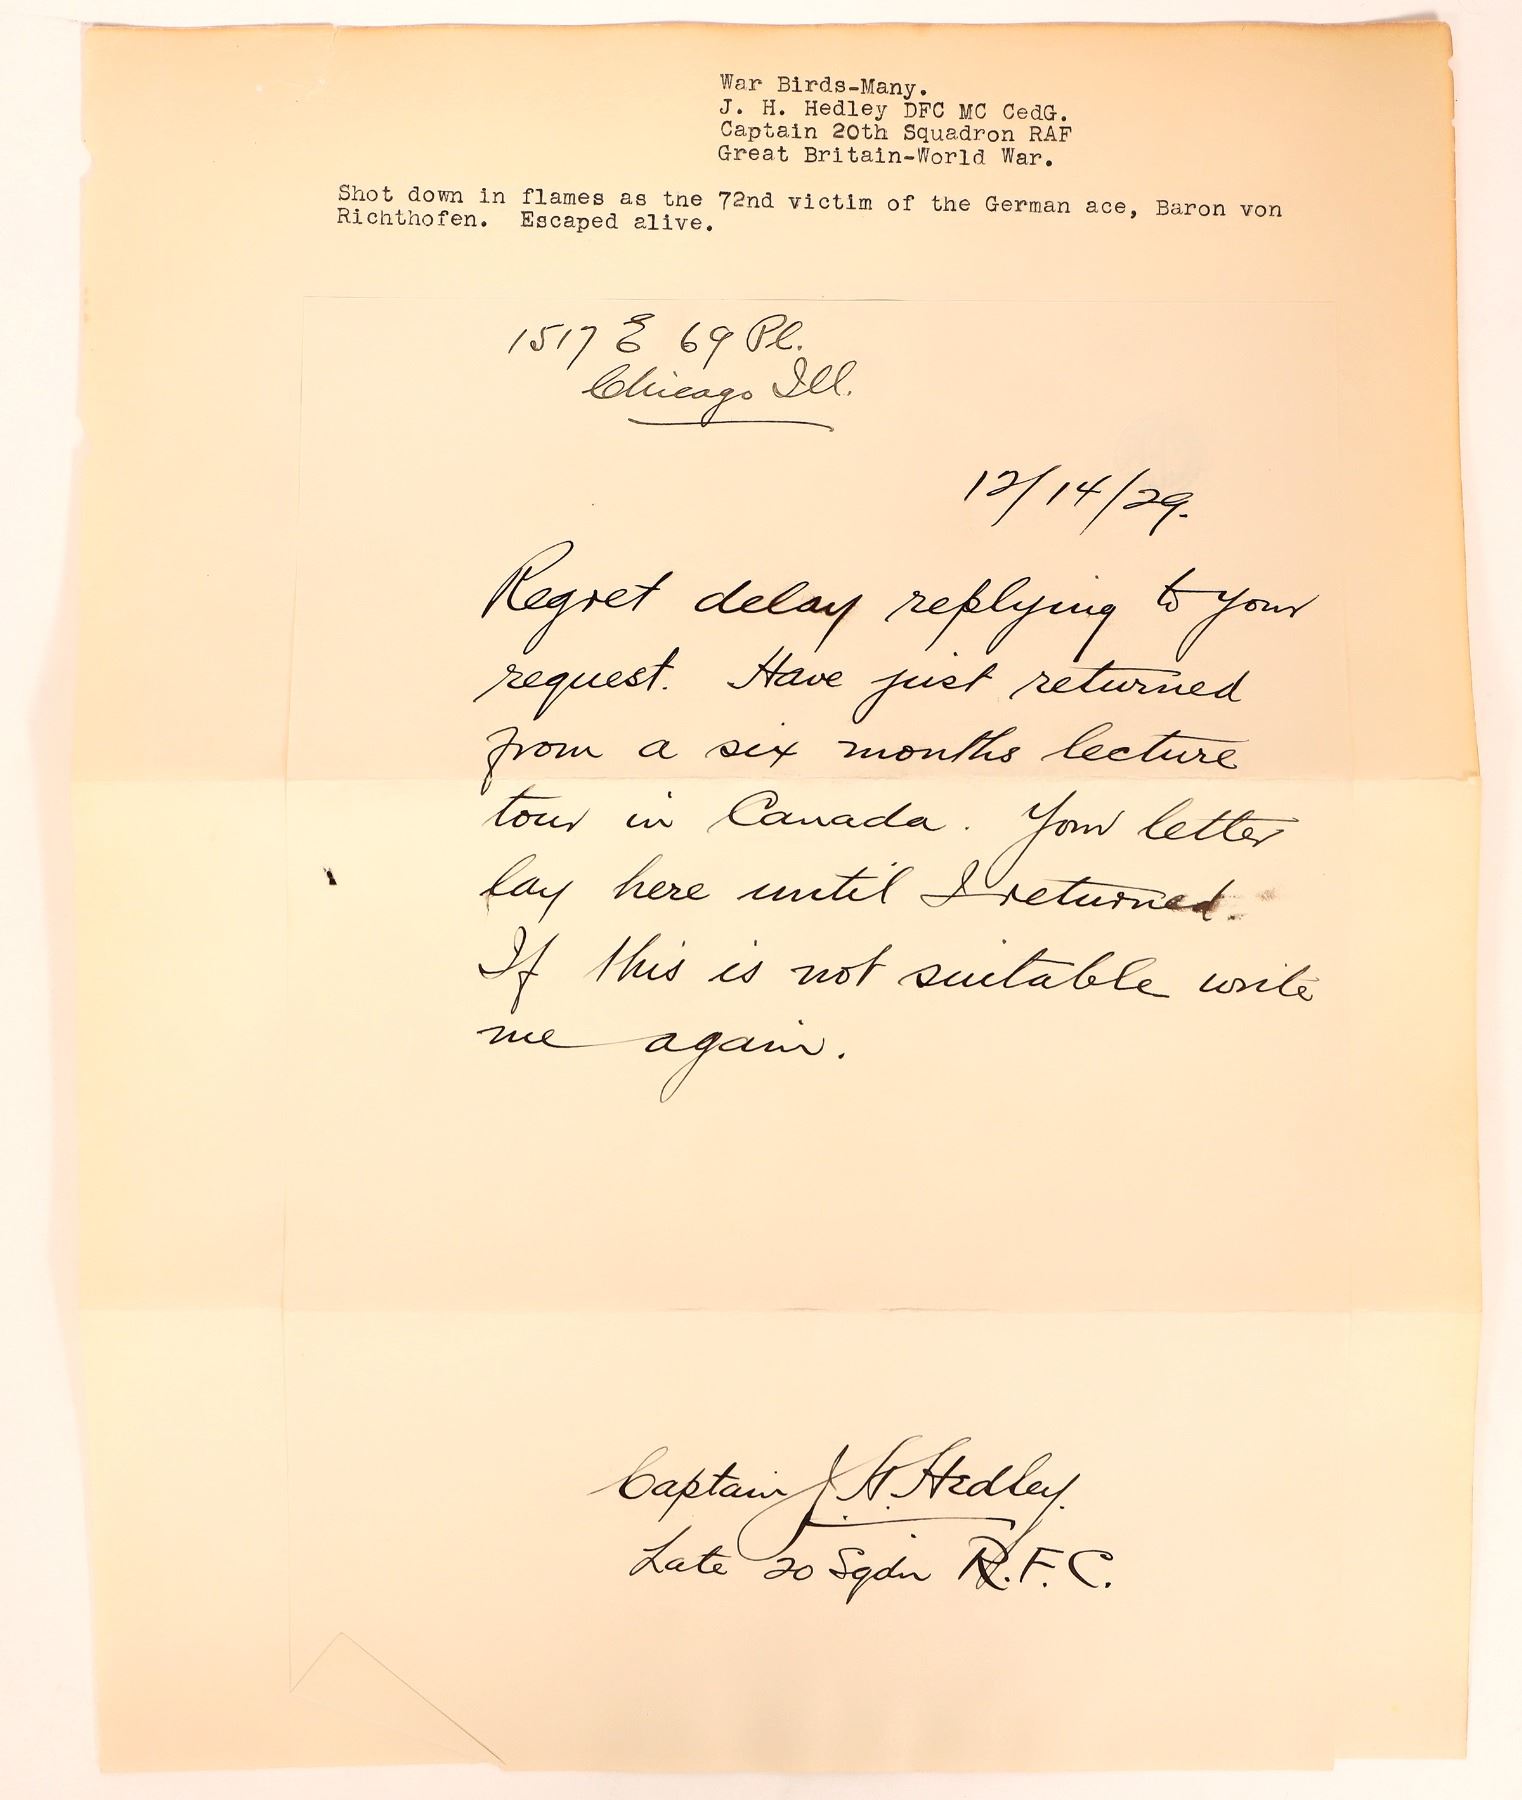 War Birds-Many.
J. H. Hedley DFC MC CedG.
Captain 20th Squadron RAF
Great Britain-World War.
Shot down in flames as tne 72nd victim of the German ace, Baron von
Richthofen. Escaped alive.
1517 E 69 Pl.
Chicago Ill.
12/14/29.
Regret delay replying to your
request. Have just returned
from a six months lecture
tour in Canada. Your letter
lay here until I returned.
If this is not suitable write
me again.
Captain J. H. Hedley.
Late 20 Sqdn R.F.C.